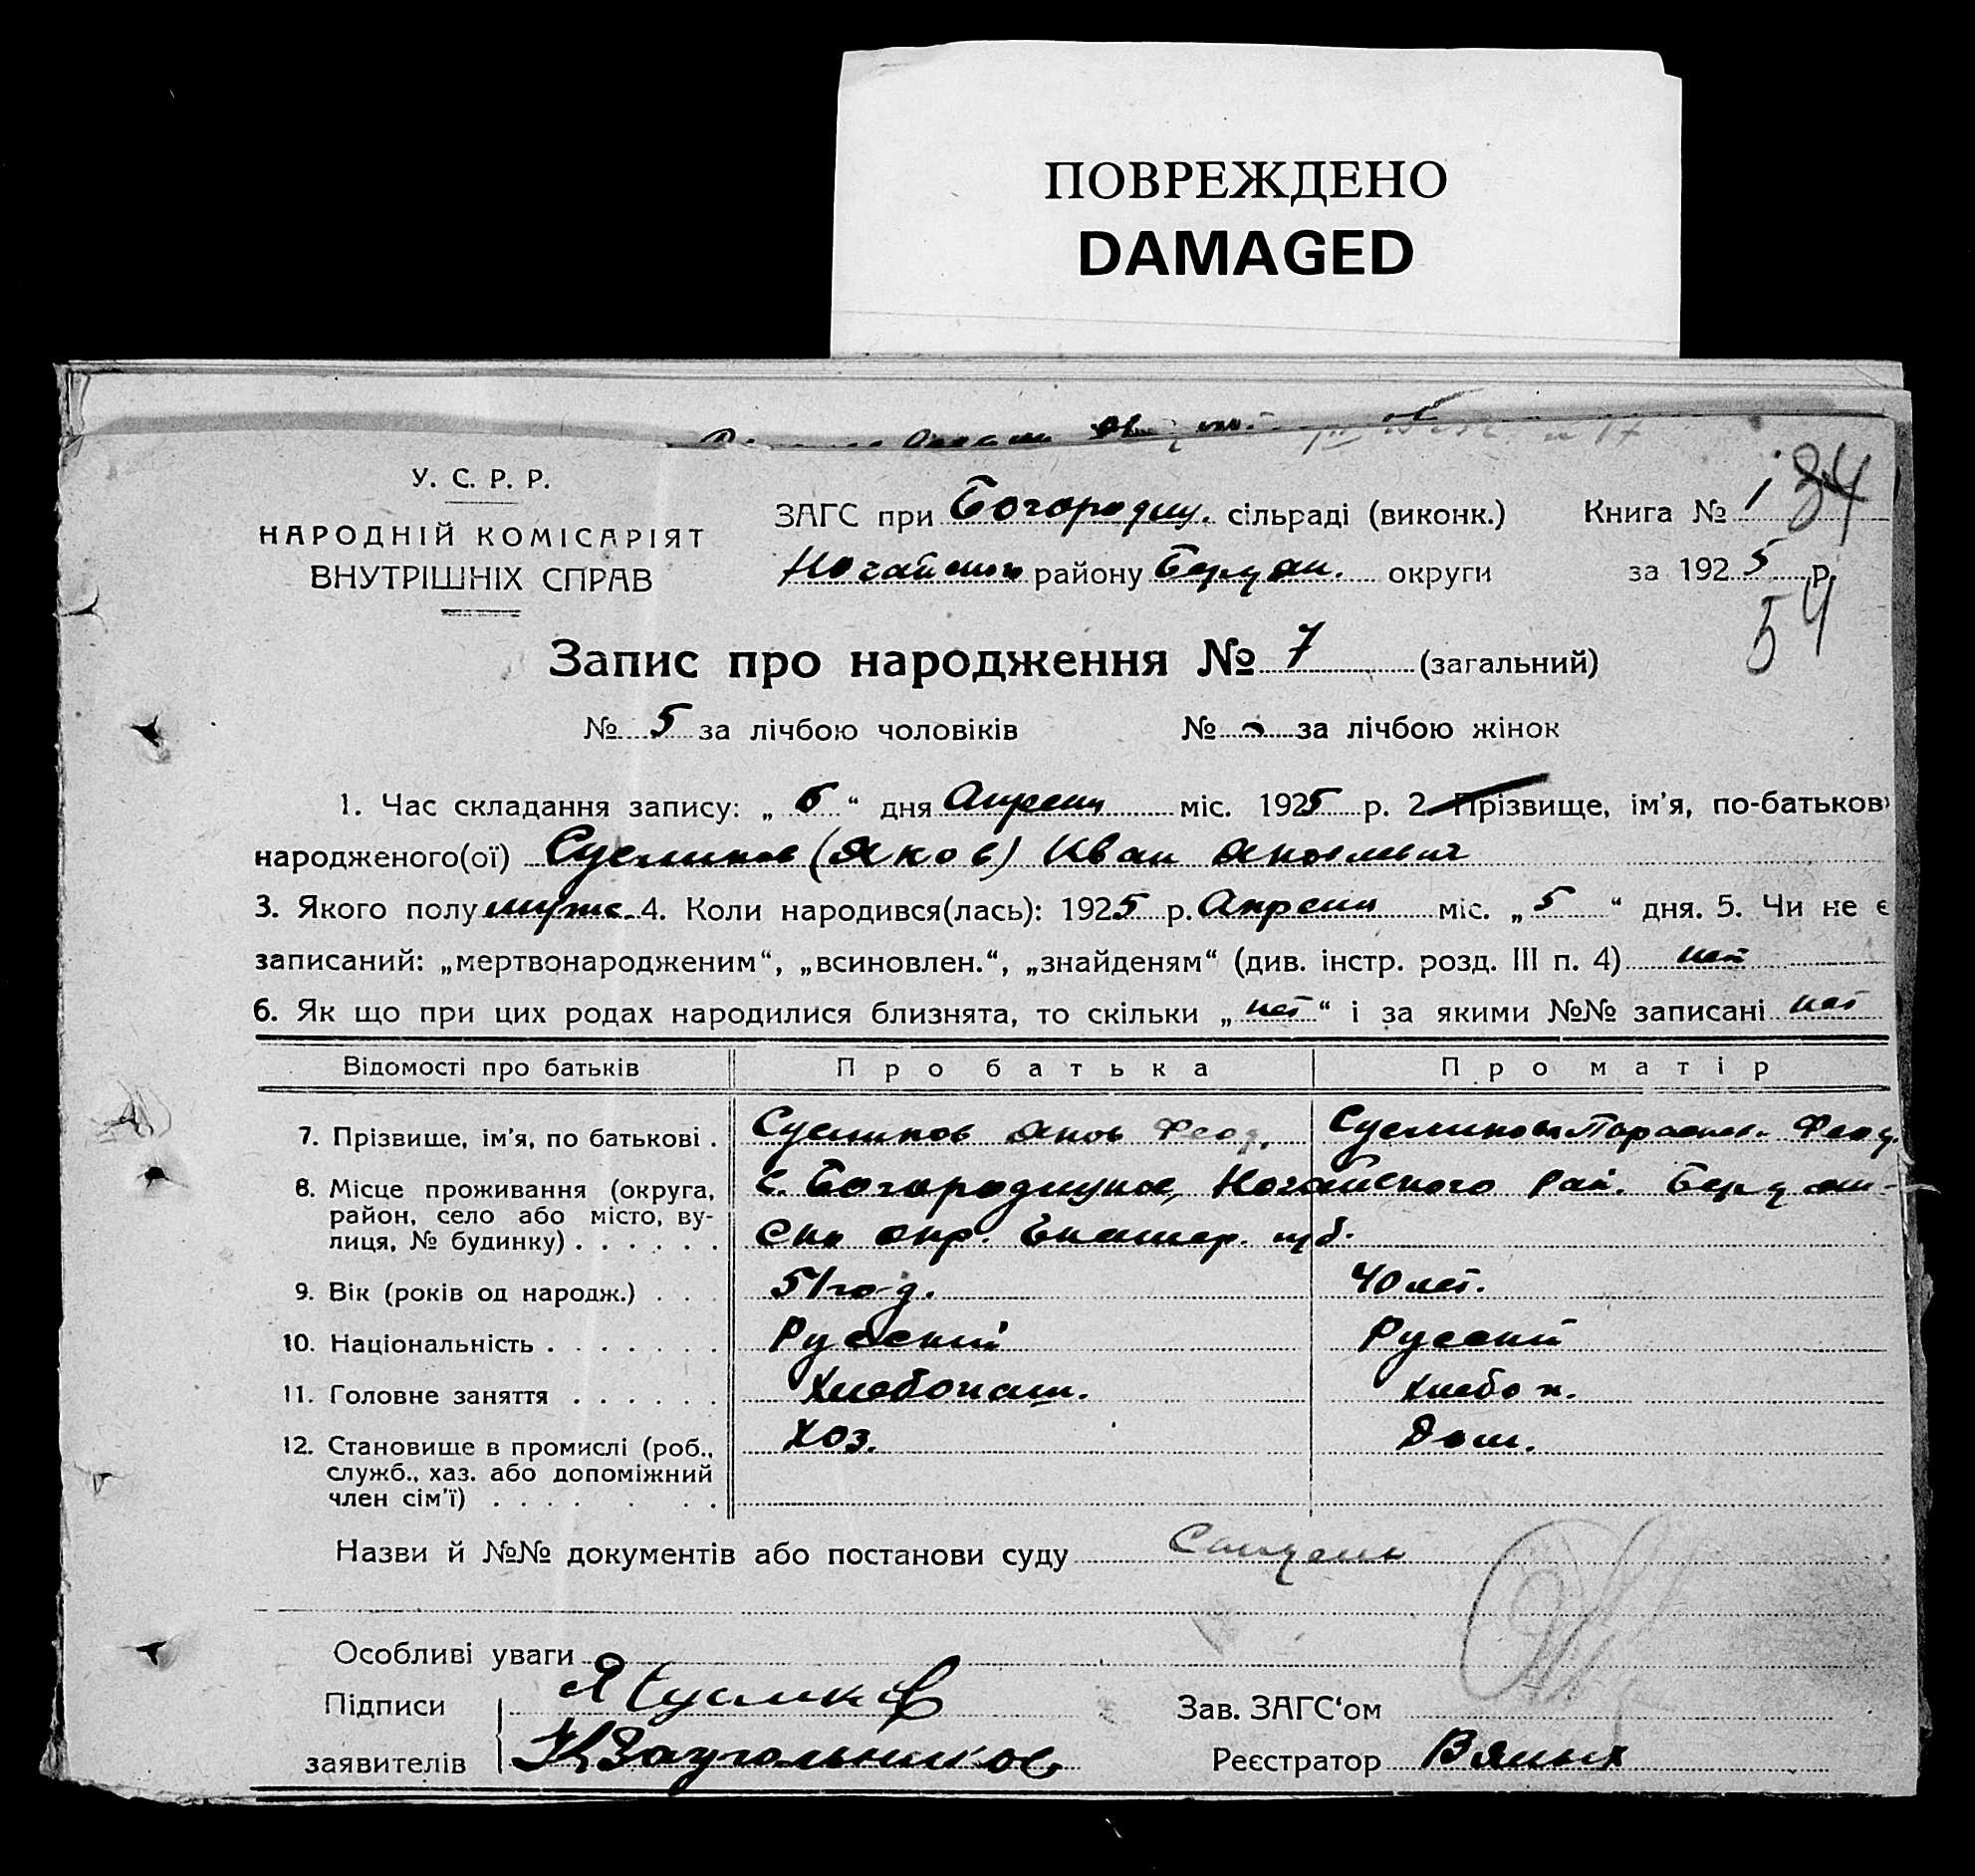 ПОВРЕЖДЕНО
DAMAGED
У. С. Р. Р.
НАРОДНІЙ КОМІСАРІЯТ
ВНУТРІШНІХ СПРАВ
ЗАГС при Богородиц. сільраді (виконк.)
Ногайского району Бердян. округи
Книга № 1 34
за 1925 р.
54
Запис про народження № 7 (загальний)
№ 5 за лічбою чоловіків № за лічбою жінок
1. Час складання запису: „ 6 “ дня Апреля міс. 1925 р. 2. Прізвище, ім'я, по-батькові
народженого(ої) Сусликов (Яков) Иван Яковлевич
3. Якого полу мужс. 4. Коли народився(лась): 1925 р. Апреля міс. „ 5 “ дня. 5. Чи не є
записаний: „мертвонародженим“, „всиновлен.“, „знайденям“ (див. інстр. розд. III п. 4) нет
6. Як що при цих родах народилися близнята, то скільки „ нет “ і за якими №№ записані нет
Відомості про батьків Про батька Про матір
7. Прізвище, ім'я, по батькові . Сусликов Яков Феод. Сусликова Параскев. Феод.
8. Місце проживання (округа, район, село або місто, вулиця, № будинку) . . . . . . с. Богородицкое, Ногайского Рай. Бердян-
ск. окр. Екатер. губ.
9. Вік (років од народж.) . . . 51 год. 40 лет.
10. Національність . . . . . . . Русский Русский
11. Головне заняття . . . . . . Хлебопаш. хлебоп.
12. Становище в промислі (роб., служб., хаз. або допоміжний член сім'ї) . . . . . . . Хоз. Дом.
Назви й №№ документів або постанови суду
Особливі уваги
Підписи Я Сусликов Зав. ЗАГС‘ом
заявителів Заугольников Реєстратор Вялых